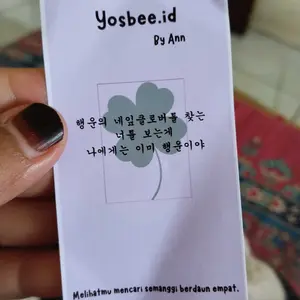 Yosbee.id
By Ann
행운의 네잎클로버를 찾는
너를 보는게
나에게는 이미 행운이야
Melihatmu mencari semanggi berdaun empat.